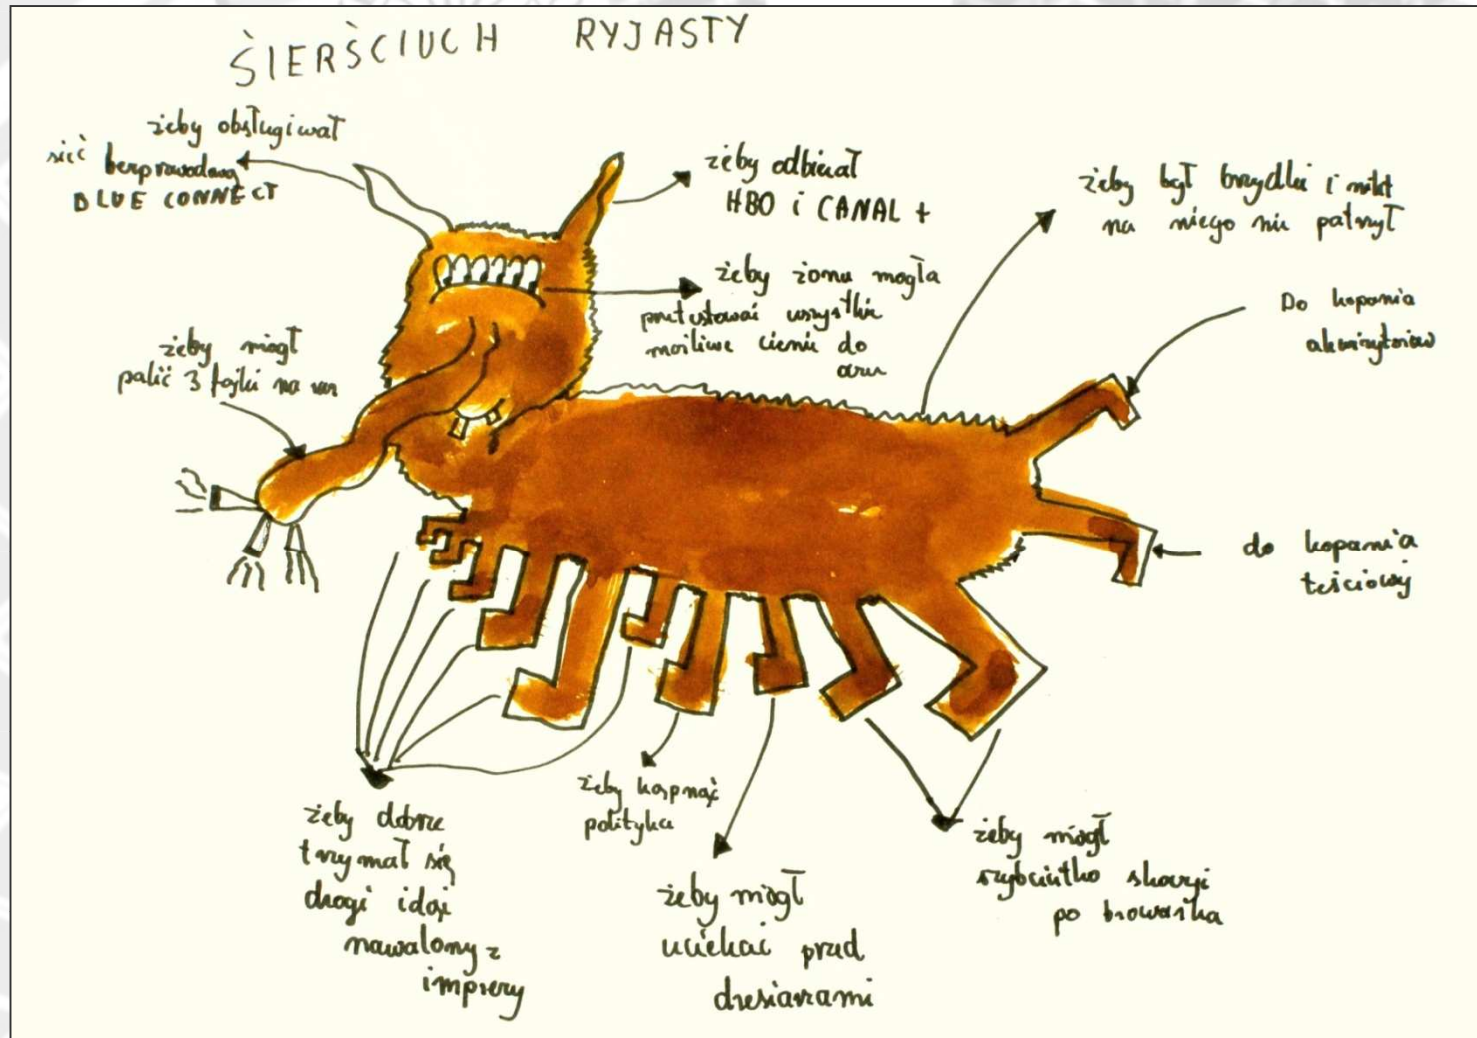 ŚIERŚCIUCH RYJASTY
żeby obsługiwał
sieć bezprzewodową
BLUE CONNECT
żeby odbierał
HBO i CANAL +
żeby był brzydki i nikt
na niego nie patrzył
żeby żona mogła
przetestować wszystkie
możliwe cienie do
oczu
Do kopania
akwizytorów
żeby mógł
palić 3 fajki na raz
do kopania
teściowej
żeby dobrze
trzymał się
drogi idąc
nawalony z
imprezy
żeby kopnąć
polityka
żeby mógł
uciekać przed
dresiarzami
żeby mógł
szybciutko skoczyć
po browarka